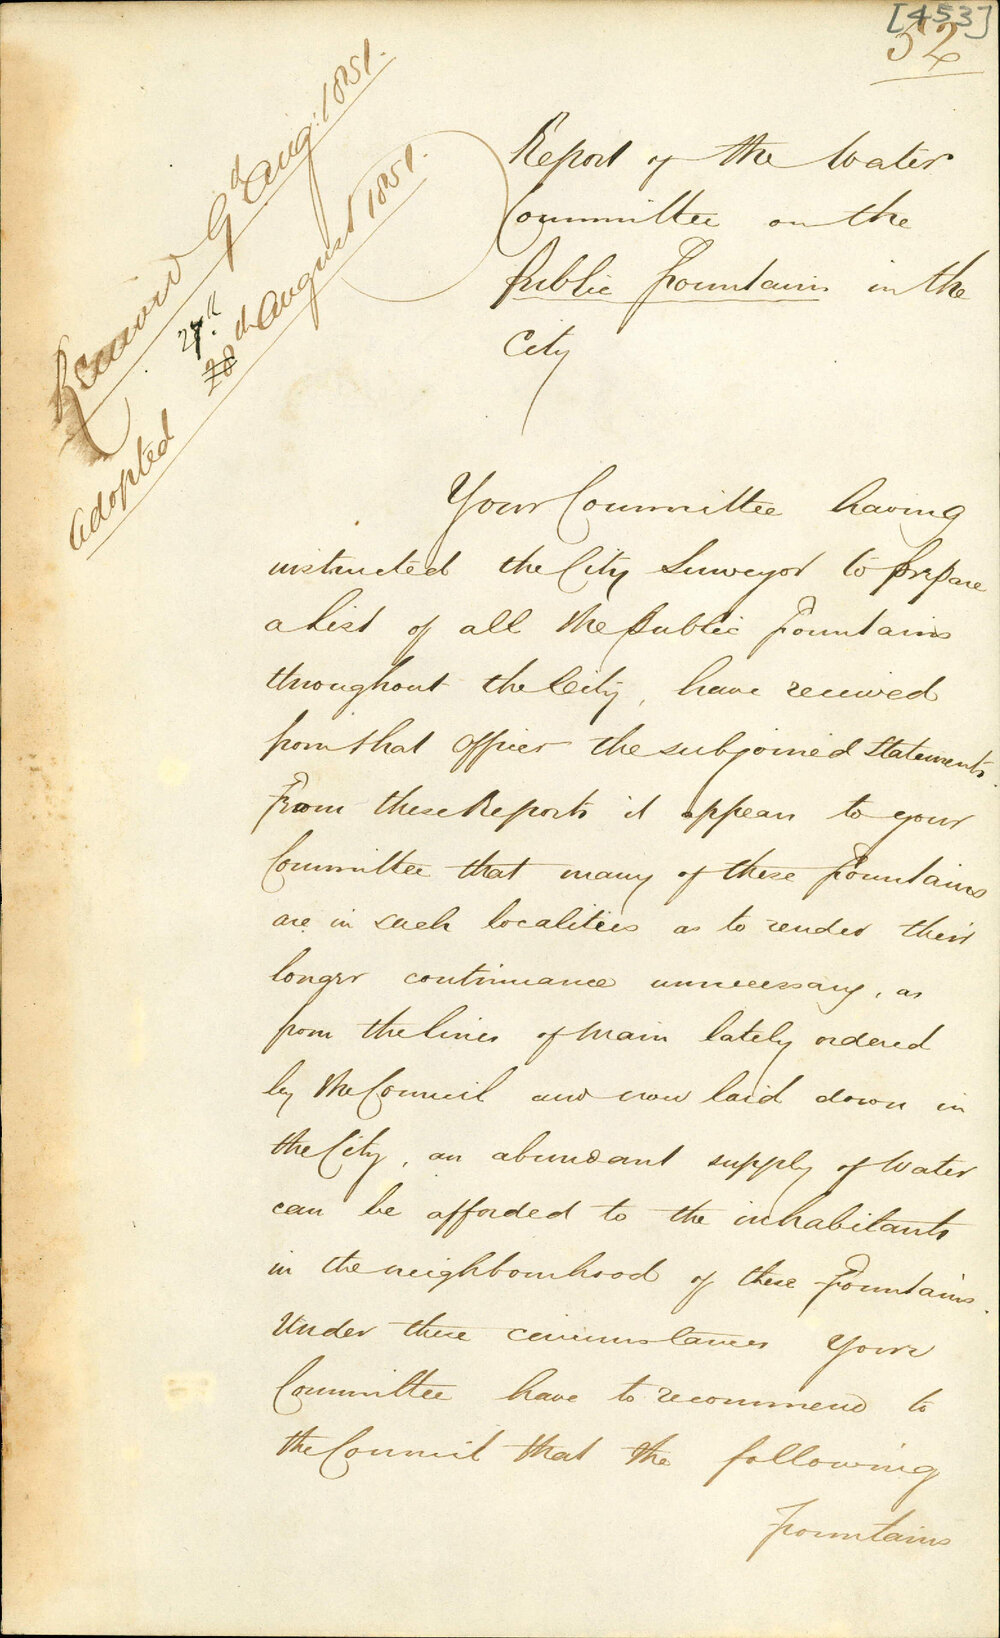 [453]
52
Received 9th Aug: 1851.
Adopted 27th 28th August 1851.
Report of the Water
Committee on the
Public Fountains in the
City
Your Committee having
instructed the City Surveyor to prepare
a List of all the Public Fountains
throughout the City, have received
from that Officer the subjoined Statements.
From these Reports it appears to your
Committee that many of these Fountains
are in such localities as to render their
longer continuance unnecessary, as
from the lines of Main lately ordered
by the Council and now laid down in
the City, an abundant supply of Water
can be afforded to the inhabitants
in the neighbourhood of these Fountains.
Under these circumstances Your
Committee have to recommend to
the Council that the following
Fountains